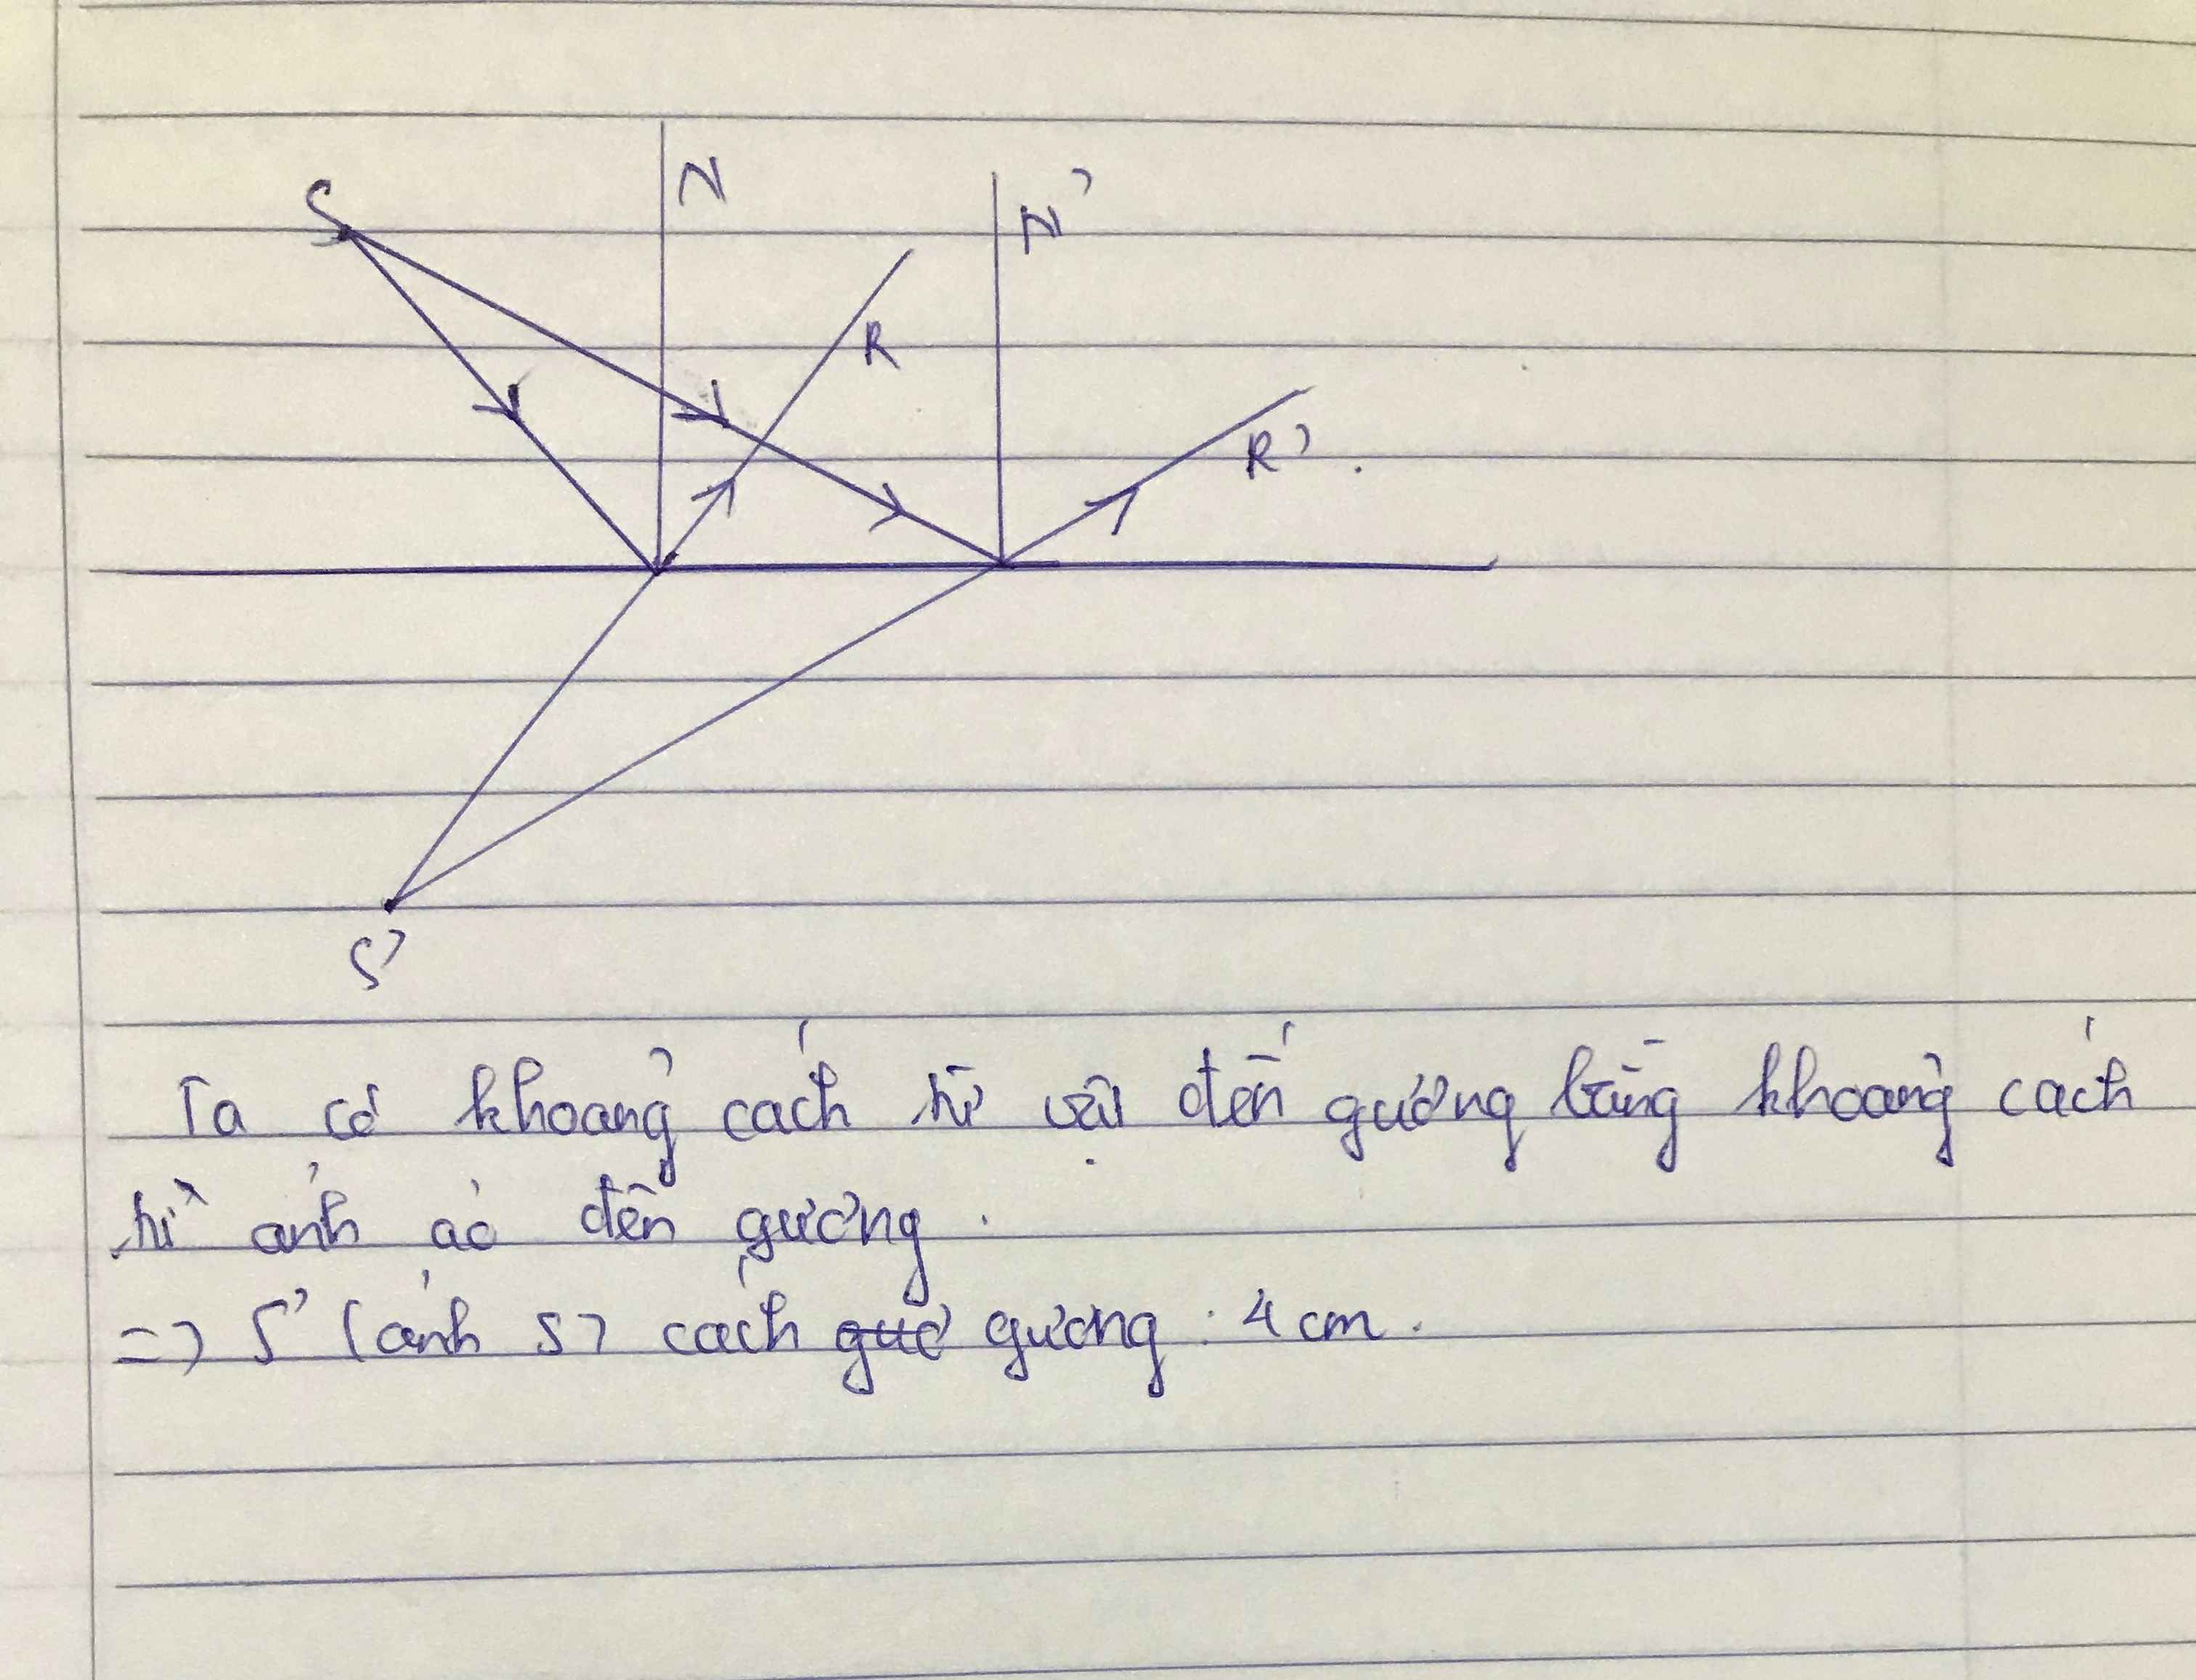 S
N
N'
R
R'
S'
Ta có khoảng cách từ vật đến gương bằng khoảng cách
từ ảnh ảo đến gương.
=> S' (ảnh S) cách gươ gương : 4 cm.